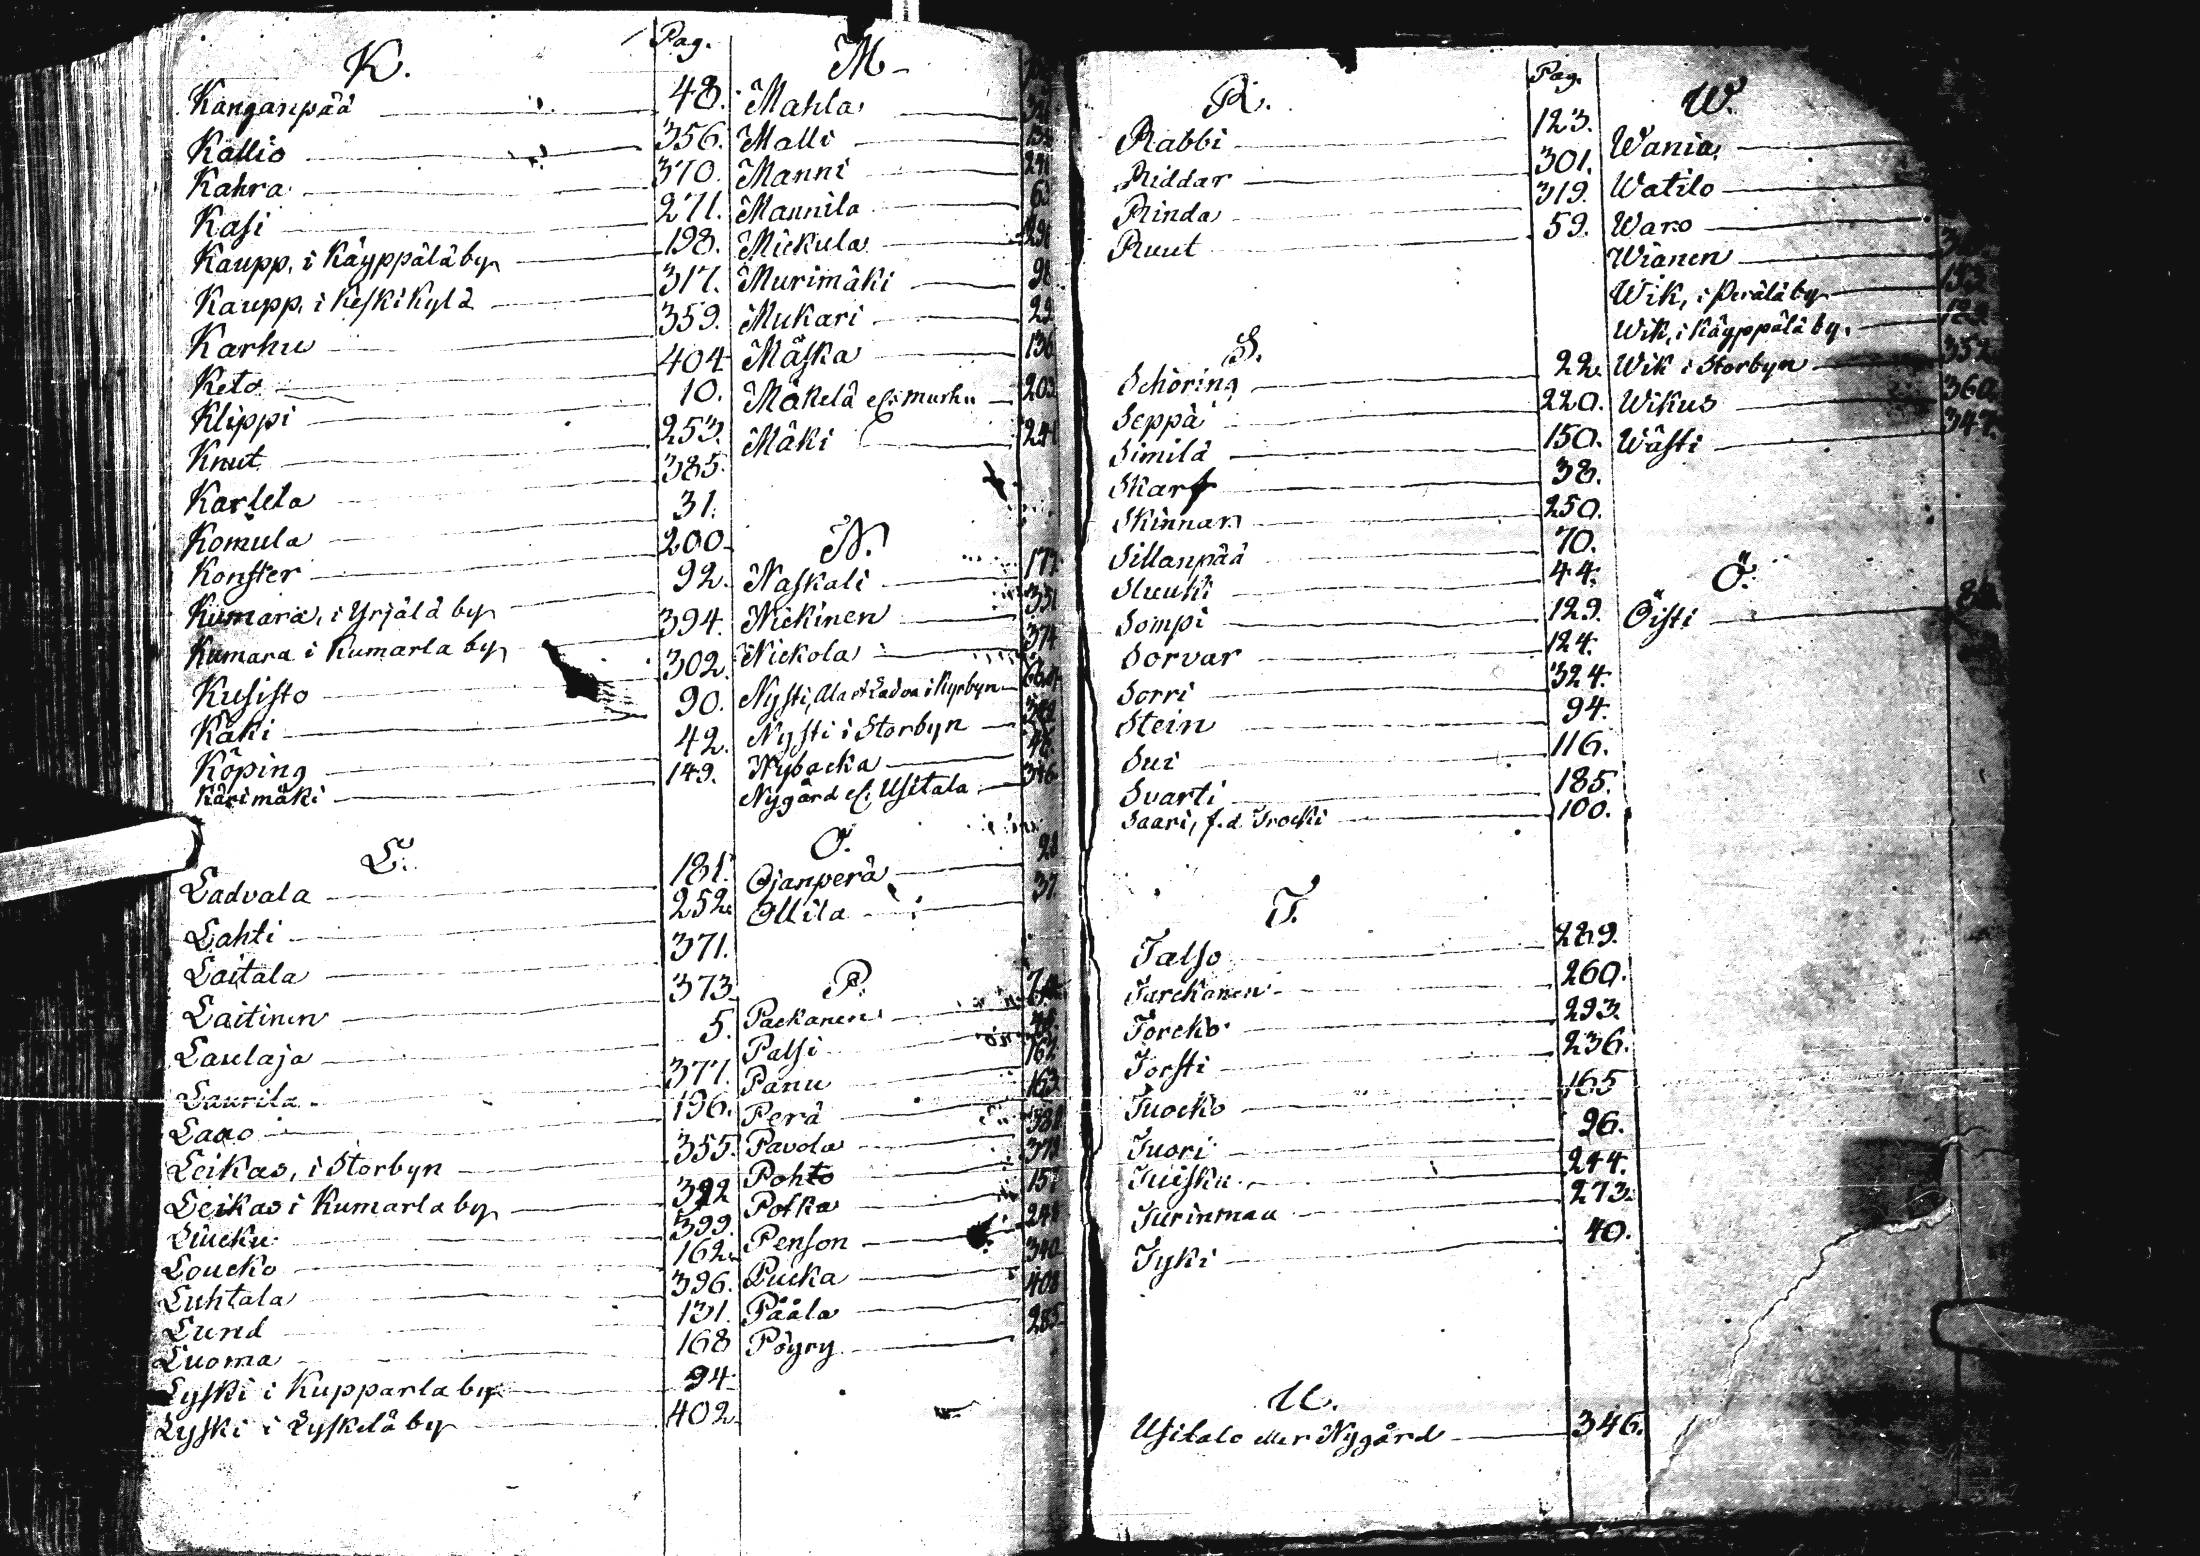 K.
Pag.
Kanganpää 48.
Kallio 356.
Kahra 370.
Kasi 271.
Kaupp. i Käyppälä by 198.
Kaupp. i Keskikylä 317.
Karhu 359.
Keto 404
Klippi 10.
Knut 253.
Karlela 385.
Komula 31.
Konster 200
Kumara, i Yrjälä by 92.
Kumara i Kumarla by 394.
Kusisto 302.
Käki 90.
Köping 42.
Kärimäki 149.
L.
Ladvala 181.
Lahti 252.
Laitala 371.
Laitinen 373
Laulaja 5.
Laurila 377.
Laao 196.
Leikas, i Storbyn 355.
Leikas i Kumarla by 392
Liucku 399.
Loucko 162.
Luhtala 396.
Lund 131.
Luoma 168
Lyski i Kupparla by 94
Lyski i Lyskelä by 402
M
Mahla
Malli
Manni
Mannila
Mickula
Murimäki 98
Mukari 29
Mäska 136
Mäkelä el. Murhu 203
Mäki
N.
Naskali
Nickinen
Nickola 374
Nysti, Ala et Ladva i Kyrbyn
Nysti i Storbyn
Nybacka
Nygård el. Usitala 346
O.
Ojanperä
Ollila 37
P.
Packanen
Palsi
Panu 162
Perä 163
Pavola
Pohto
Potka
Penson
Pucka 340
Pääla 408
Pöyry 285
Pag.
R.
Rabbi 123.
Riddar 301.
Rinda 319.
Ruut 59.
S.
Schöring 22.
Seppä 220.
Similä 150.
Skarf 38.
Skinnar 250.
Sillanpää 70.
Sluuki 44.
Sompi 129.
Sorvar 124.
Sorri 324.
Stein 94.
Sui 116.
Svarti 185.
Saari, f.d. Trocki 100.
T.
Talso 289.
Tarckanen 260.
Torcko 293.
Torsti 236.
Tuocko 165
Tuori 26.
Tuisku 244.
Turinmaa 273.
Tyki 40.
U.
Usitalo eller Nygård 346.
W.
Wania
Watilo
Waro
Wianen
Wik, i Perälä by
Wik, i Käyppälä by.
Wik i Storbyn 352
Wikus 360
Wästi 347.
Ö.
Öisti